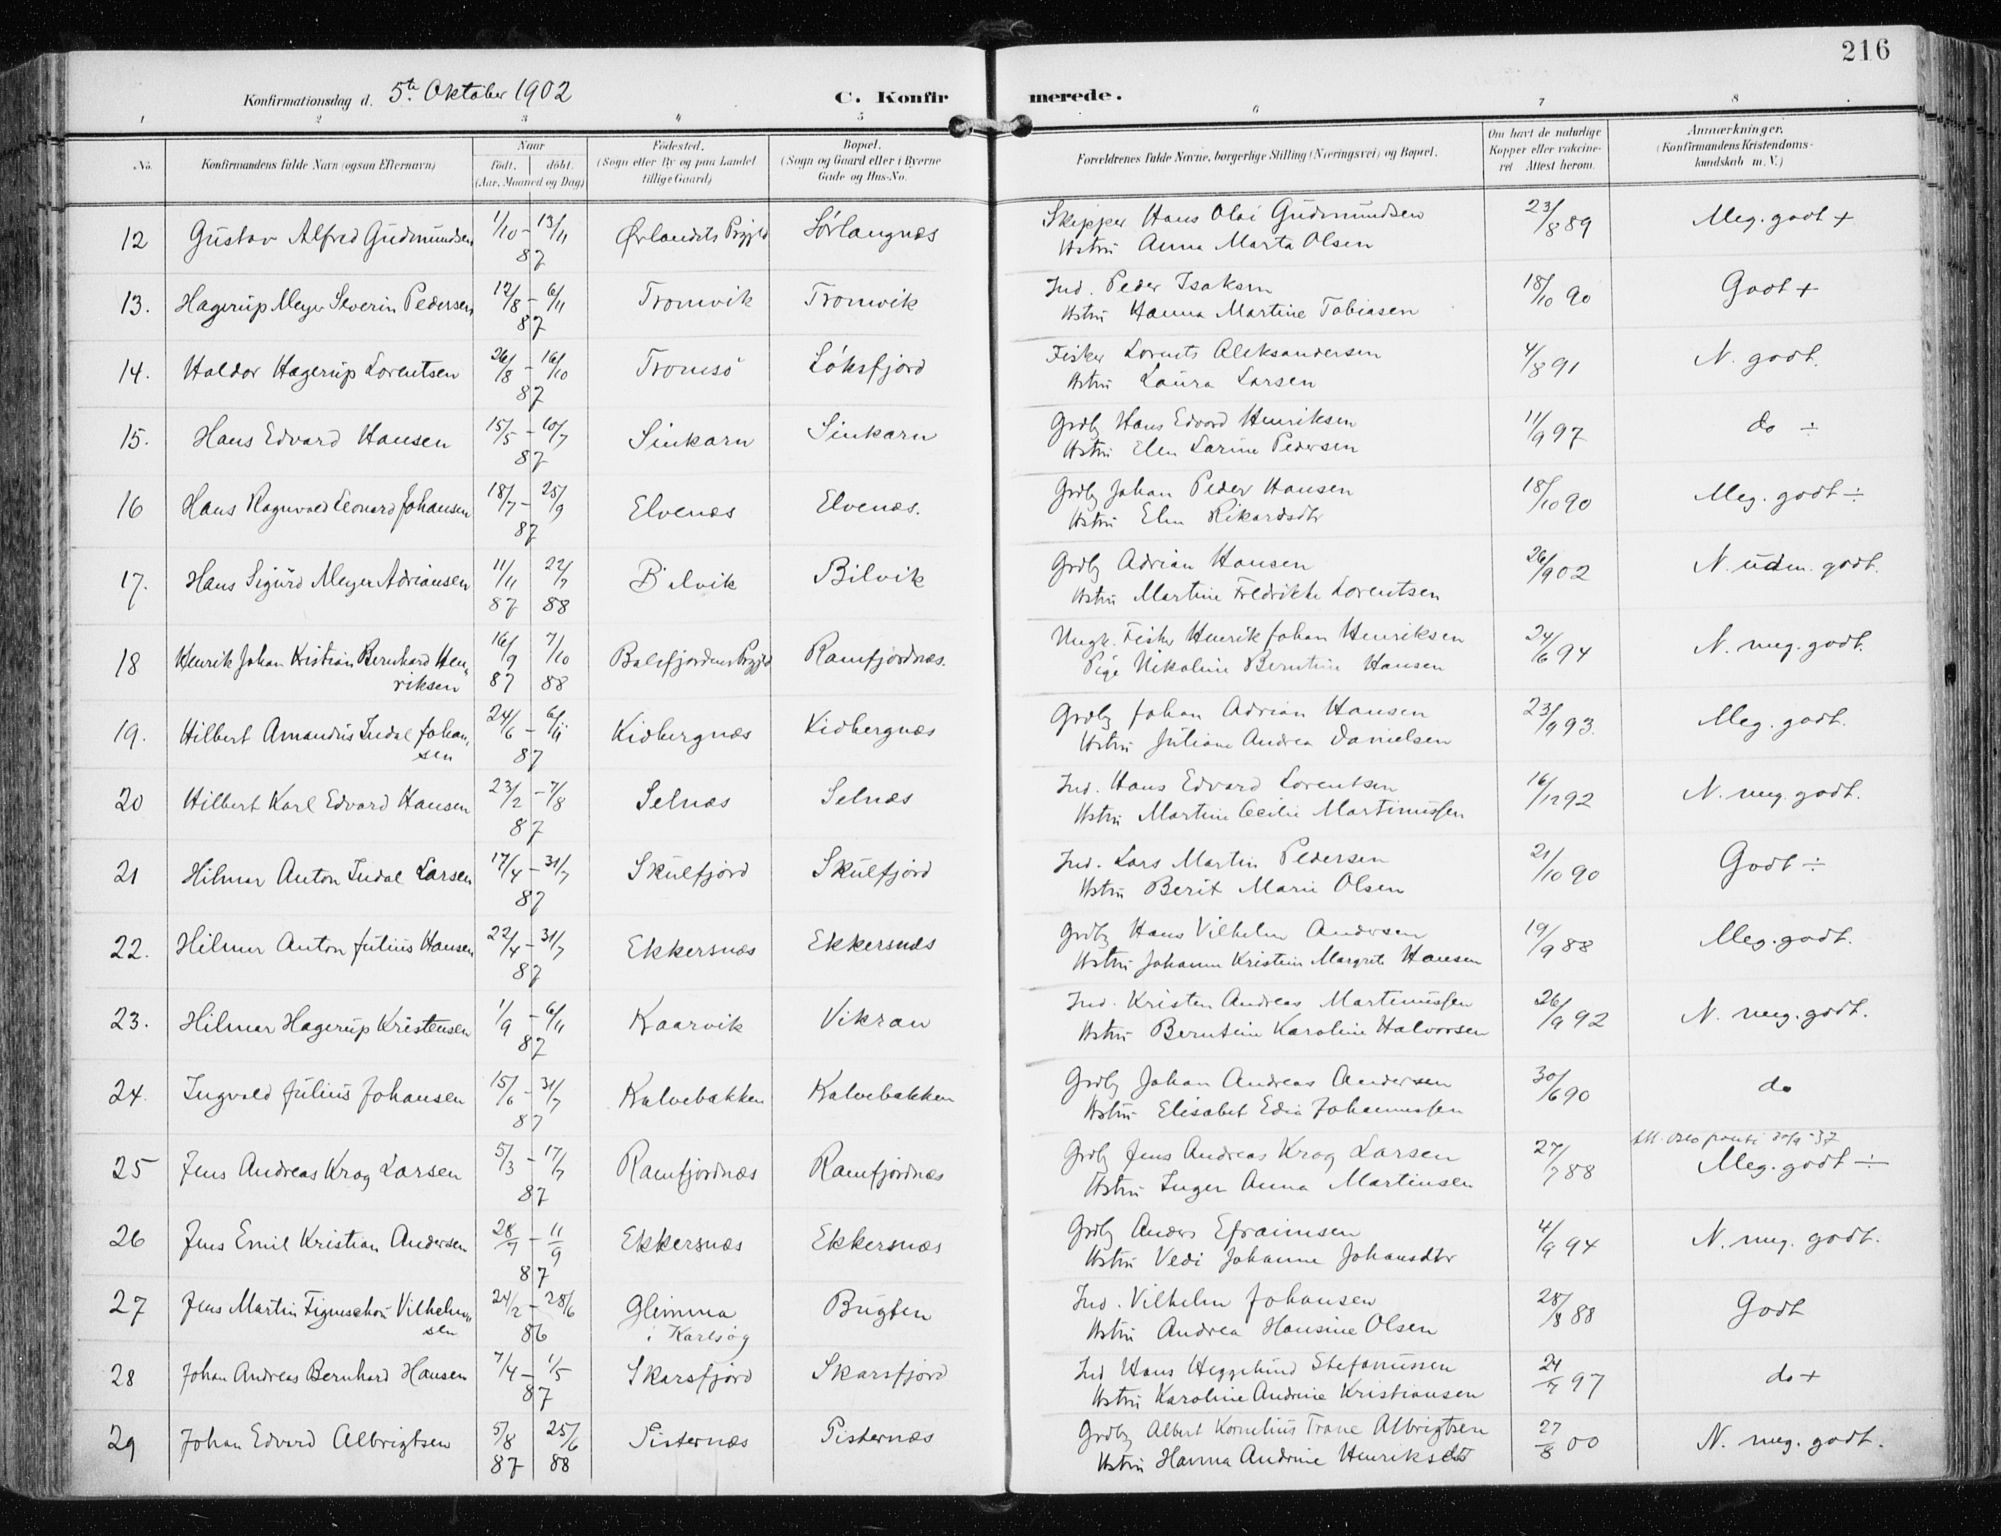 216
Konfirmationsdag d. 5te Oktober 1902
C. Konfirmerede.
1 2 3 4 5 6 7 8
No. Konfirmandens fulde Navn (ogsaa Efternavn) Naar født, døbt. (Aar, Maaned og Dag) Fødested. (Sogn eller By og paa Landet tillige Gaard) Bopæl. (Sogn og Gaard eller i Byerne Gade og Hus-No. Forældrenes fulde Navne, borgerlige Stilling (Næringsvei) og Bopæl. Om havt de naturlige Kopper eller vaccineret Attest herom. Anmærkninger. (Konfirmandens Kristendomskundskab m. V.)
12 Gustav Alfred Gudmundsen 1/10 – 13/11 87 Ørlandets Prgjld Sørlangnæs Skipper Hans Olai Gudmundsen 23/8 89 Meg. godt +
Hstru Anna Marta Olsen
13. Hagerup Meyer Severin Pedersen 12/8 – 6/11 87 Tromvik Tromvik Ind. Peder Isaksen 18/10 90 Godt +
Hstru Hanna Martine Tobiasen
14. Haldor Hagerup Lorentsen 26/8 – 16/10 87 Tromsö Løksfjord Fisker Lorents Aleksandersen 4/8 91 N. godt.
Hstru Laura Larsen
15. Hans Edvard Hansen 15/5 – 10/7 87 Sinkarn Sinkarn Grdbg Hans Edvard Henriksen 11/9 97 do ÷
Hstru Elen Larine Pedersen
16 Hans Ragnvald Leonard Johansen 18/7 – 25/9 87 Elvenæs Elvenæs. Grdbg Johan Peder Hansen 18/10 90 Meg. godt ÷
Hstru Elen Rikardsdtr
17. Hans Sigurd Meyer Adriansen 11/11 87 22/7 88 Bilvik Bilvik Grdbg Adrian Hansen 26/9 02 N. udm. godt.
Hstru Martine Fredrikke Lorentsen
18 Henrik Johan Kristian Bernhard Henriksen 16/9 87 7/10 88 Balsfjordens Prgjld Ramfjordnæs. Ungk. Fisker Henrik Johan Henriksen 24/6 94 N. meg. godt.
Pige Nikoline Berntine Hansen
19. Hilbert Amandus Indal Johansen 24/6 – 6/11 87 Kidbergnæs Kidbergnæs Grdbg Johan Adrian Hansen 23/9 93. Meg. godt.
Hstru Juliane Andrea Danielsen
20 Hilbert Karl Edvard Hansen 23/2 – 7/8 87 Selnæs Selnæs Ind. Hans Edvard Lorentsen 16/12 92 N. meg. godt.
Hstru Martine Cecilie Martinussen
21 Hilmar Anton Indal Larsen 17/4 – 31/7 87 Skulfjord Skulfjord Ind. Lars Martin Pedersen 21/10 90 Godt ÷
Hstru Berit Marie Olsen
22. Hilmer Anton Julius Hansen 22/4 – 31/7 87 Ekkersnæs Ekkersnæs Grdbg Hans Vilhelm Andersen 19/9 88 Meg. godt.
Hstru Johanne Kristine Margrete Hansen
23. Hilmar Hagerup Kristensen 1/9 – 6/11 87 Kaarvik Vikran Ind. Kristen Andreas Martinussen 26/9 92 N. meg. godt.
Hstru Berntine Karoline Halvorsen
24. Ingvald Julius Johansen 15/6 – 31/7 87 Kalvebakken Kalvebakken Grdbg Johan Andreas Andersen 30/6 90 do
Hstru Elisabet Edia Johannessen
25 Jens Andreas Krag Larsen 5/3 – 17/7 87 Ramfjordnæs Ramfjordnæs Grdbg Jens Andreas Krog Larsen 27/7 88 Meg. godt ÷
Hstru Inger Anna Martinsen
26 Jens Emil Kristian Andersen 28/7 – 11/9 87 Ekkersnæs Ekkersnæs Grdbg Anders Efraimsen 4/9 94 N. meg. godt.
Hstru Vedi Johanne Johansdtr
27 Jens Martin Vilhelmsen 24/2 – 28/6 86 Glimma i Karlsøg Bugten Ind. Vilhelm Johansen 28/8 88 Godt
Hstru Andrea Hansine Olsen
28 Johan Andreas Bernhard Hansen 7/4 – 1/5 87 Skarsfjord Skarsfjord Ind Hans Heggelund Stefanussen 24/7 97 do +
Hstru Karoline Andrine Kristiansen
29 Johan Edvard Albrigtsen 5/8 87 25/6 88 Tisternæs Tisternæs Grdbg Albert Kornelius Trane Albrigtsen 27/8 00 N. meg. godt.
Hstru Hanna Andrine Henriksdtr